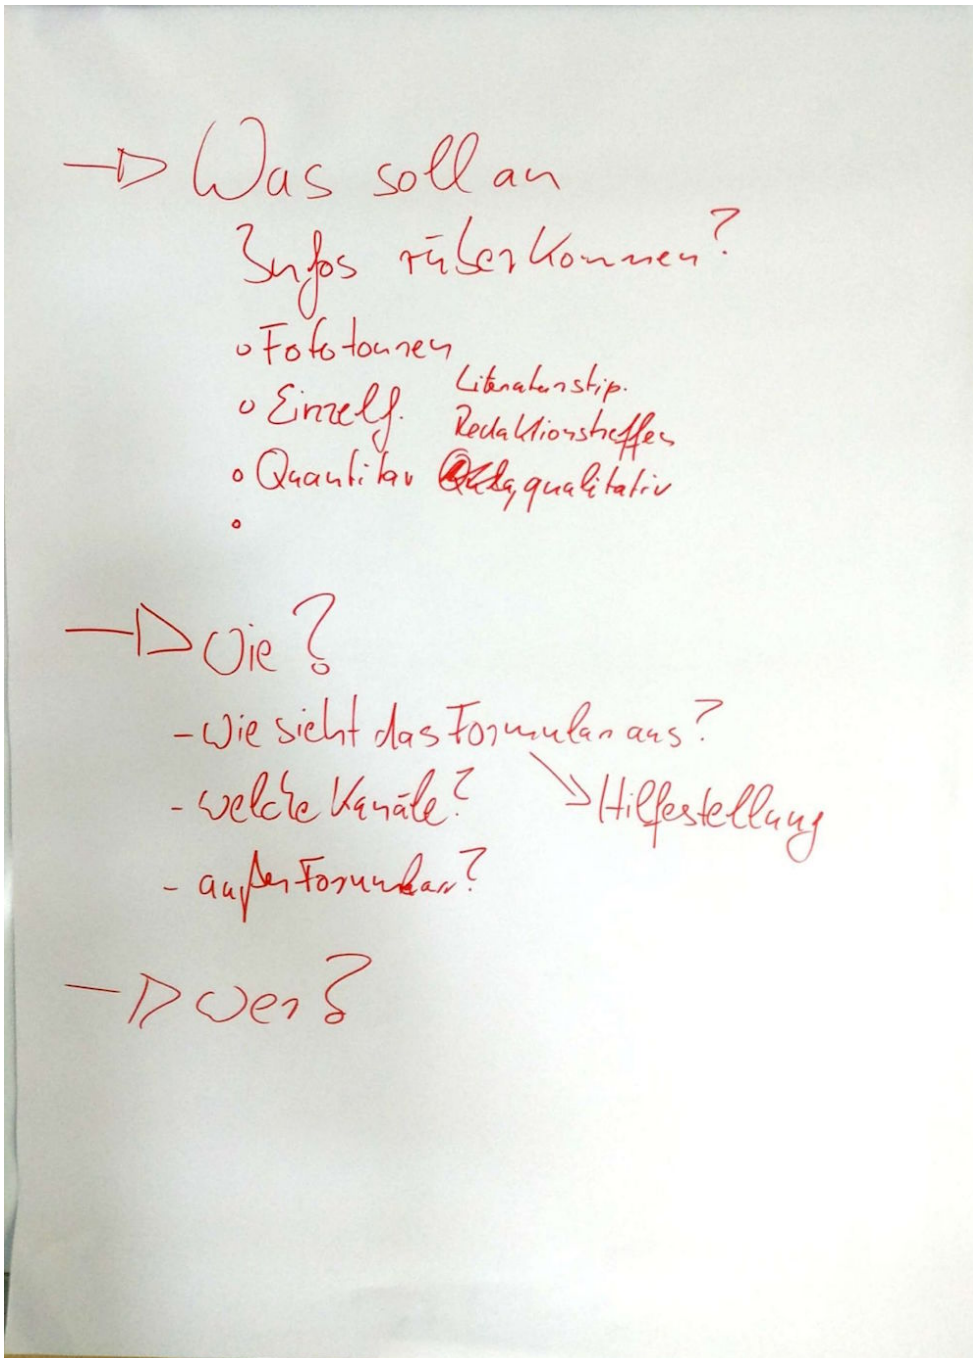 → Was soll an
Infos rüberkommen?
o Fototouren
o Einzelf. Literaturstip.
Redaktionstreffen
o Quantitav , qualitativ
o
→ Wie?
- Wie sieht das Formular aus?
→ Hilfestellung
- welche Kanäle?
- außer Formular?
→ wer?